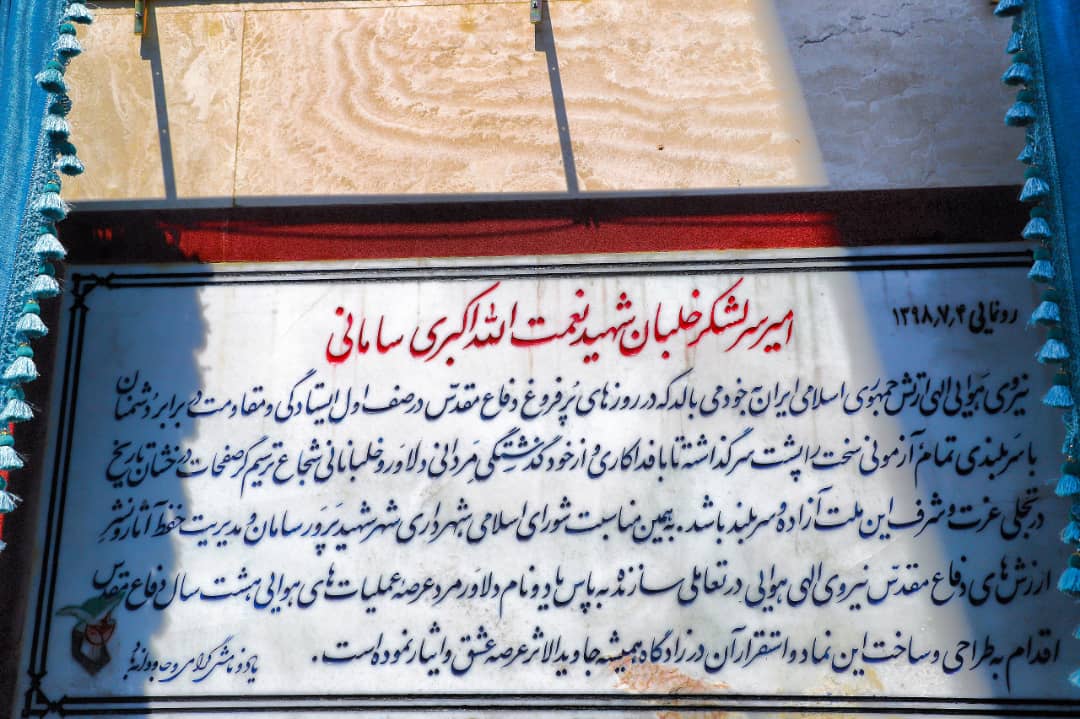 رونمایی ۱۳۹۸٫۷٫۴
امیر سرلشکر خلبان شهید نعمت الله اکبری سامانی
نیروی هوایی الهی ارتش جمهوری اسلامی ایران به خود می بالد که در روزهای پُر فروغ دفاع مقدّس در صف اول ایستادگی و مقاومت در برابر دشمنان
با سَربلندی تمام آزمونی سخت را پشت سر گذاشته تا با فداکاری و از خود گذشتگی مَردانی دلاوَر و خلبانانی شجاع ترسیم گر صفحات درخشان تاریخ
در تجلی عزت و شرف این ملت آزاده و سربلند باشد. بهمین مناسبت شورای اسلامی شهرداری شهر شهید پَروَر سامان و مدیریت حفظ آثار و نشر
ارزش های دفاع مقدّس نیروی الهی هوایی در تعاملی سازنده به پاس یاد و نام دلاوَرمرد عرصهٔ عملیات های هوایی هشت سال دفاع مقدّس
اقدام به طراحی و ساخت این نماد و استقرار آن در زادگاه همیشه جاوید الاثر عرصه عشق و ایثار نموده است.
یاد و نامش گرامی و جاودانه باد